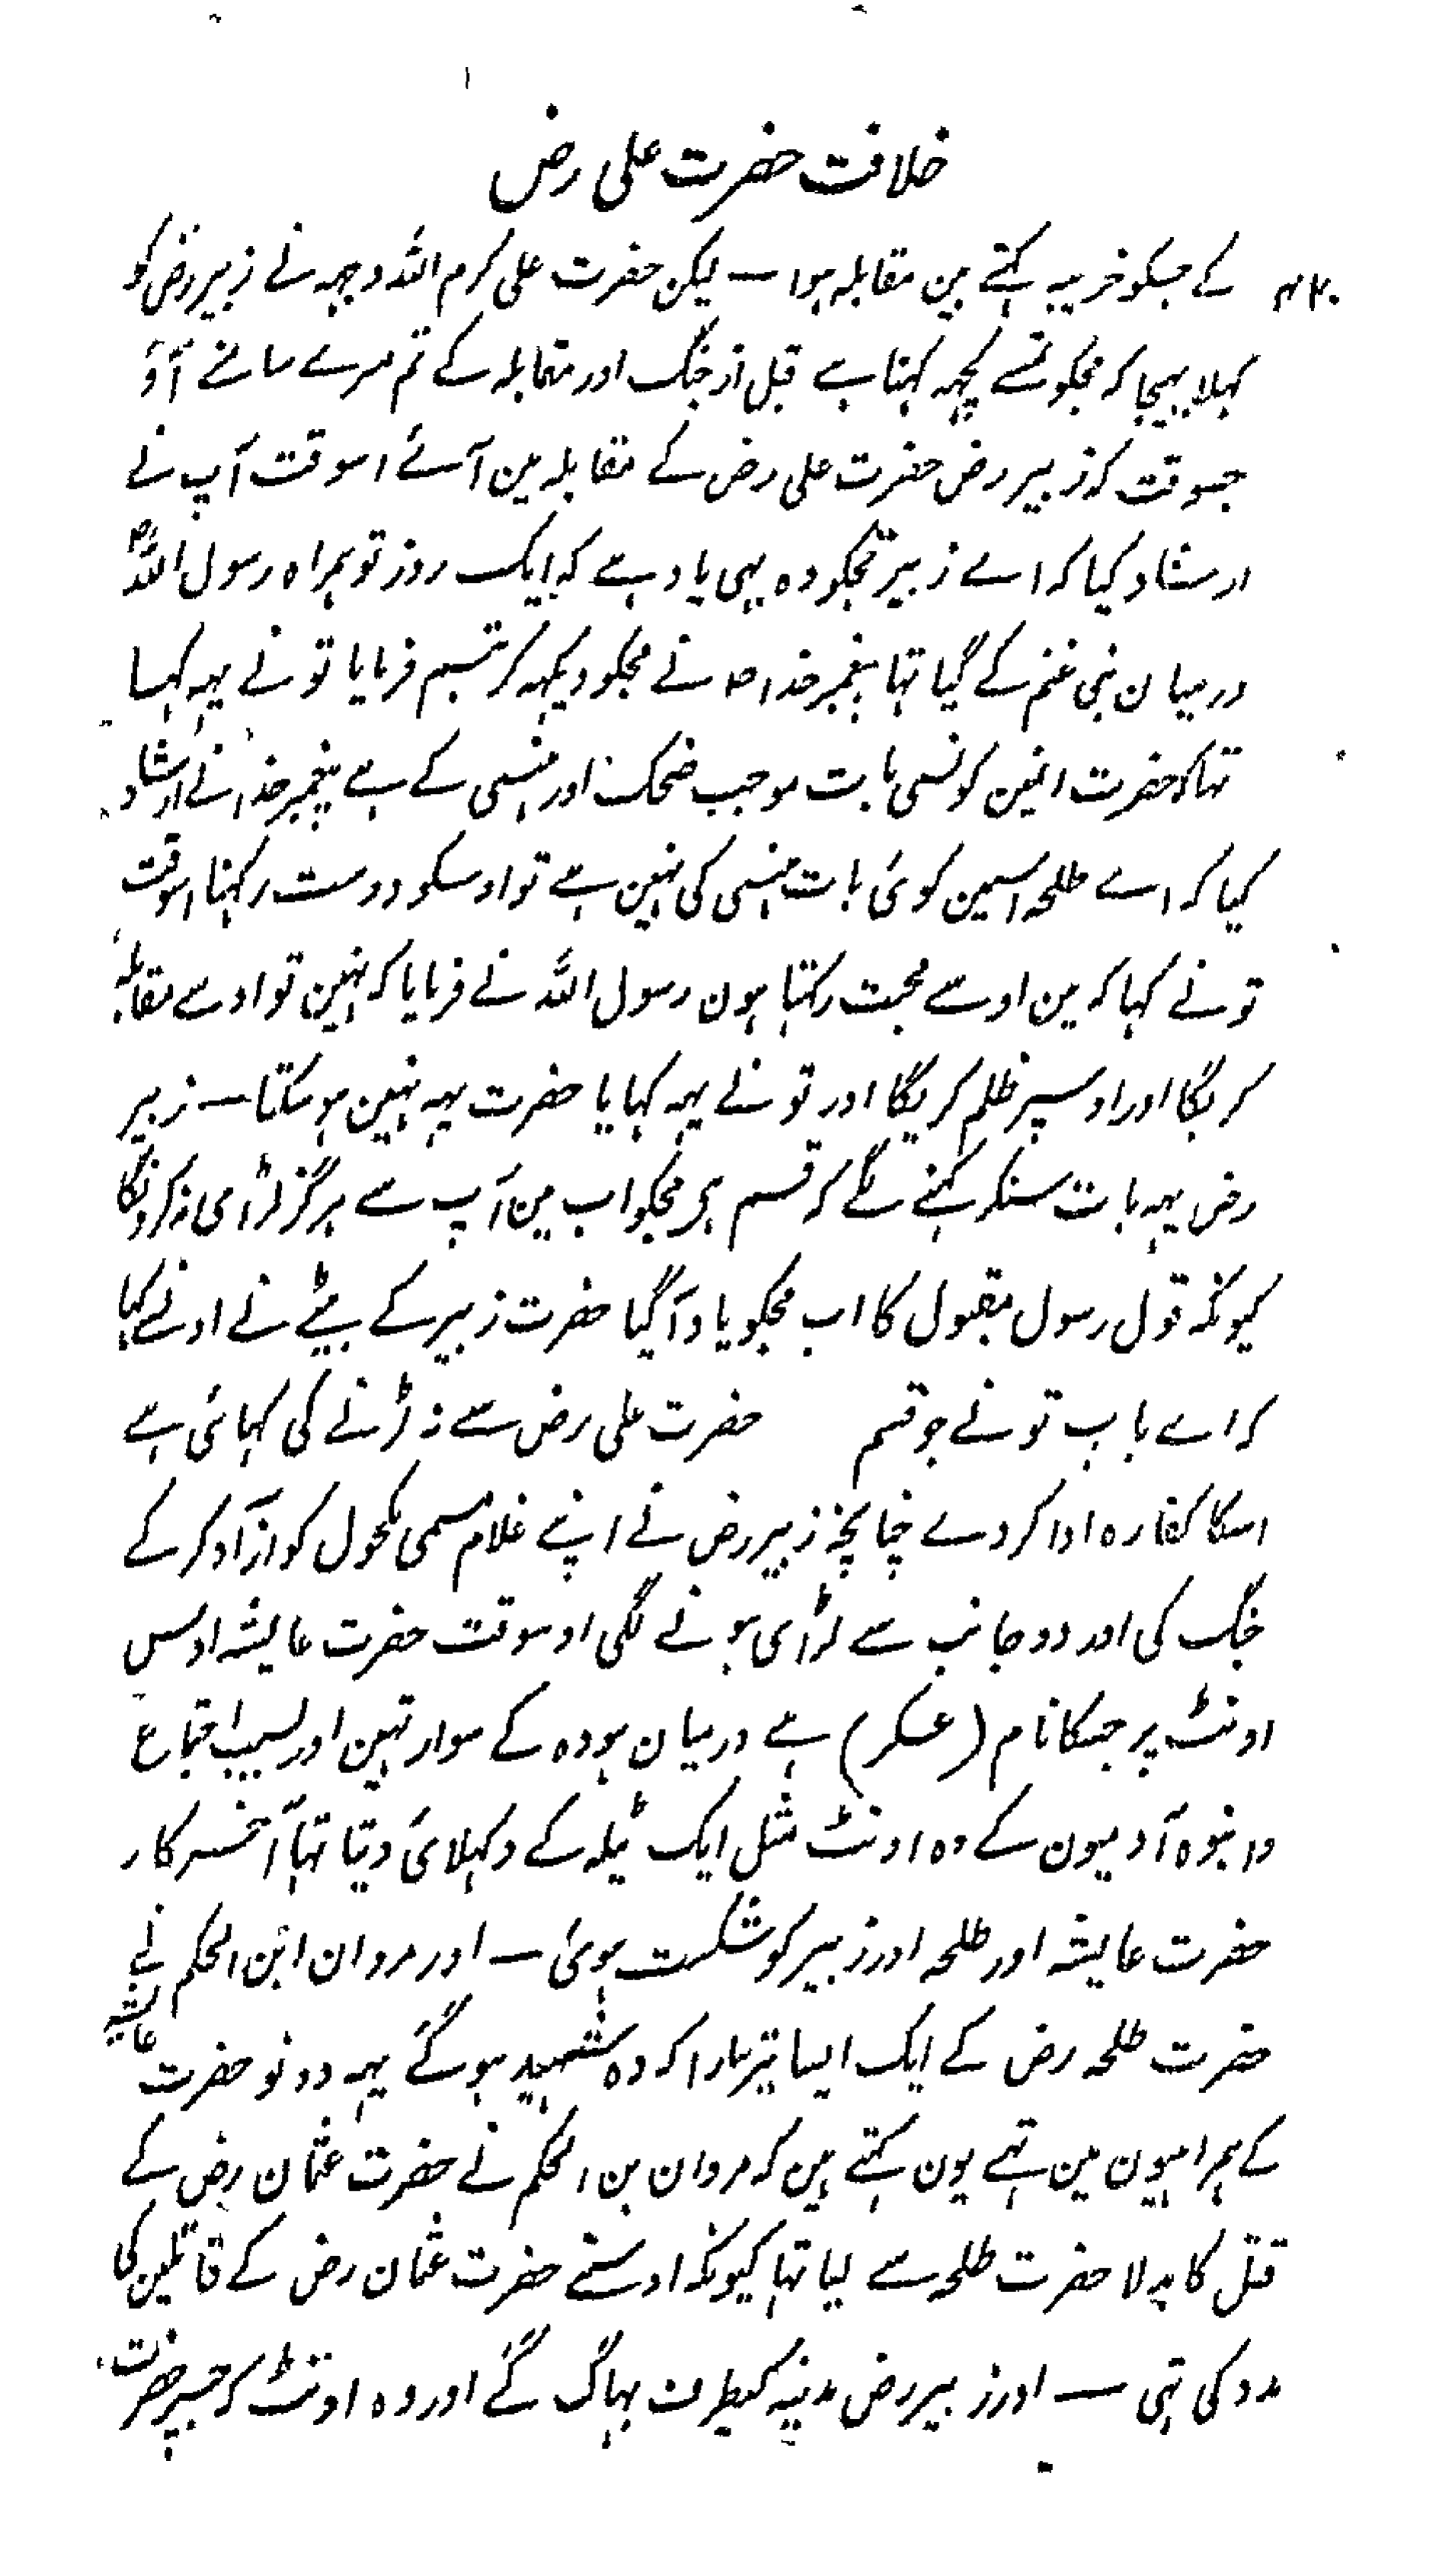 خلافت حضرت علی رض
کے جسکو خریبہ کہتے ہین مقابلہ ہوا — لیکن حضرت علی کرم اللہ وجہہ نے زبیر رض کو
کہلا بہیجا کہ مجکو تمسے کچہہ کہنا ہے قبل از جنگ اور مقابلہ کے تم مرے سامنے آؤ
جسوقت کہ زبیر رض حضرت علی رض کے مقابلہ مین آئے اسوقت آپ نے
ارشاد کیا کہ اے زبیر تجکو وہ بہی یاد ہے کہ ایک روز تو ہمراہ رسول اللہ ؐ
درمیان بنی غنم کے گیا تہا پیغمبر خدا ؐ نے مجکو دیکہہ کر تبسم فرمایا تو نے یہہ کہا
تہا کہ حضرت انمین کونسی بات موجب ضحک اور ہنسی کے ہے پیغمبر خدا نے ارشاد
کیا کہ اے طلحہ اسمین کوئی بات ہنسی کی نہین ہے تو اوسکو دوست رکہنا اسوقت
تو نے کہا کہ مین اوسے محبت رکہتا ہون رسول اللہ نے فرمایا کہ نہین تو اوسے مقابلہ
کریگا اور اوسپر ظلم کریگا اور تو نے یہہ کہا یا حضرت یہہ نہین ہو سکتا — زبیر
رض یہہ بات سنکر کہنے لگے کہ قسم ہی مجکو اب مین آپ سے ہرگز لڑای نہ کرونگا
کیونکہ قول رسول مقبول کا اب مجکو یاد آگیا حضرت زبیر کے بیٹے نے اونے کہا
کہ اے باپ تو نے جو قسم حضرت علی رض سے نہ لڑنے کی کہائی ہے
اسکا کفارہ ادا کر دے چنانچہ زبیر رض نے اپنے غلام مسمی مکحول کو ازآد کر کے
جنگ کی اور دو جانب سے لڑای ہونے لگی اوسوقت حضرت عایشہ اوس
اونٹ پر جسکا نام (عسکر) ہے درمیان ہودہ کے سوار تہین اور بسبب اجتماع
و انبوہ آدمیون کے وہ اونٹ مثل ایک ٹیلہ کے دکہلائی دیتا تہا آخر کار
حضرت عایشہ اور طلحہ اور زبیر کو شکست ہوئی — اور مروان ابن الحکم نے
حضرت طلحہ رض کے ایک ایسا تیر مارا کہ وہ شہید ہو گے یہہ دونو حضرت عایشہ
کے ہمراہیون مین تہے یون کہتے ہین کہ مروان بن الحکم نے حضرت عثمان رض کے
قتل کا بدلا حضرت طلحہ سے لیا تہا کیونکہ اوسنے حضرت عثمان رض کے قاتلین کی
مدد کی تہی — اور زبیر رض مدینہ کیطرف بہاگ گے اور وہ اونٹ کہ جسپر حضرت